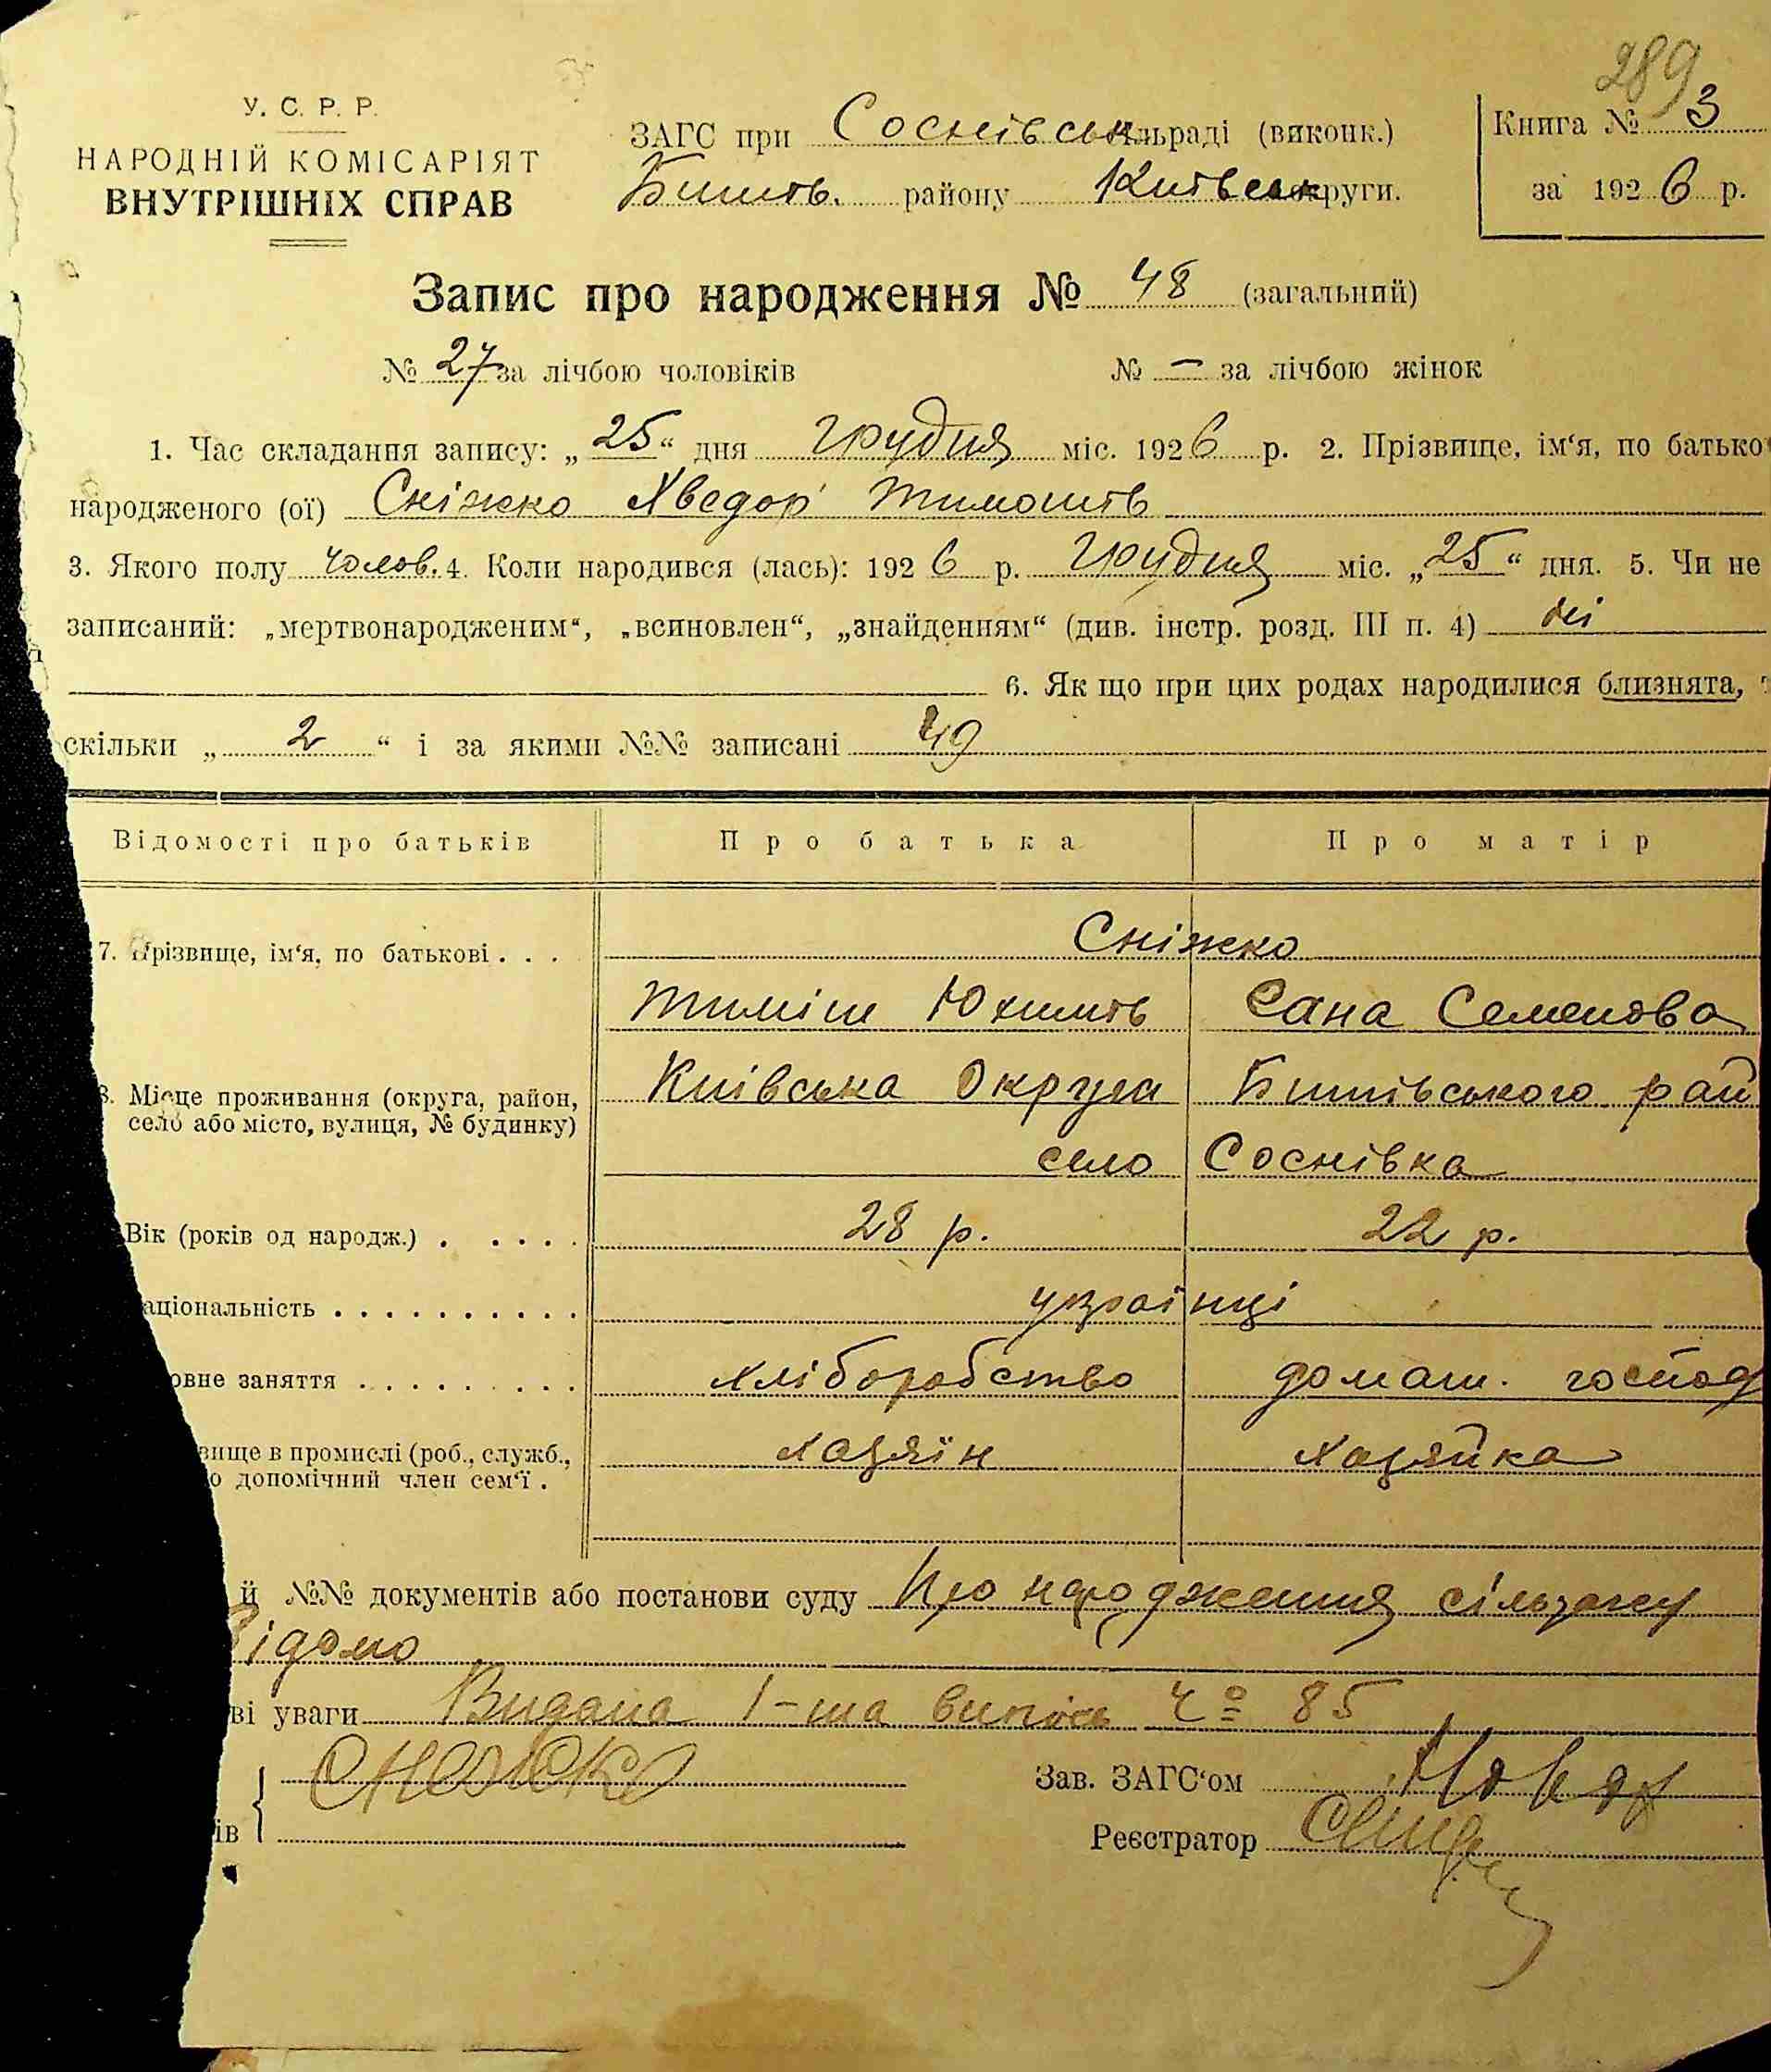 289
У. С. Р. Р.
НАРОДНІЙ КОМІСАРІЯТ
ВНУТРІШНІХ СПРАВ
ЗАГС при Соснівськ льраді (виконк.)
Бишів. району Київськ округи.
Книга № 3
за 1926 р.
Запис про народження № 48 (загальний)
№ 27 за лічбою чоловіків № — за лічбою жінок
1. Час складання запису: „25“ дня грудня міс. 1926 р. 2. Прізвище, ім‘я, по батько
народженого (ої) Сніжко Хведор Тимошів
3. Якого полу чолов. 4. Коли народився (лась): 1926 р. грудня міс. „25“ дня. 5. Чи не
записаний: „мертвонародженим“, „всиновлен“, „знайденням“ (див. інстр. розд. III п. 4) ні
6. Як що при цих родах народилися близнята,
скільки „2“ і за якими №№ записані 49
Відомості про батьків Про батька Про матір
7. Прізвище, ім‘я, по батькові . . . Сніжко
Тиміш Юхимів Гана Семенова
8. Місце проживання (округа, район, Київська Округа Бишівського рай
село або місто, вулиця, № будинку) село Соснівка
Вік (років од народж.) . . . . . 28 р. 22 р.
аціональність . . . . . . . . . . українці
овне заняття . . . . . . . . . хліборобство домаш. господ
вище в промислі (роб., служб., хазяїн хазяйка
о допомічний член сем‘ї .
й №№ документів або постанови суду Про народження сільзагсу
відомо
ві уваги Видана 1-ша випись Ч० 85
Сніжко Зав. ЗАГС‘ом
ів Реєстратор